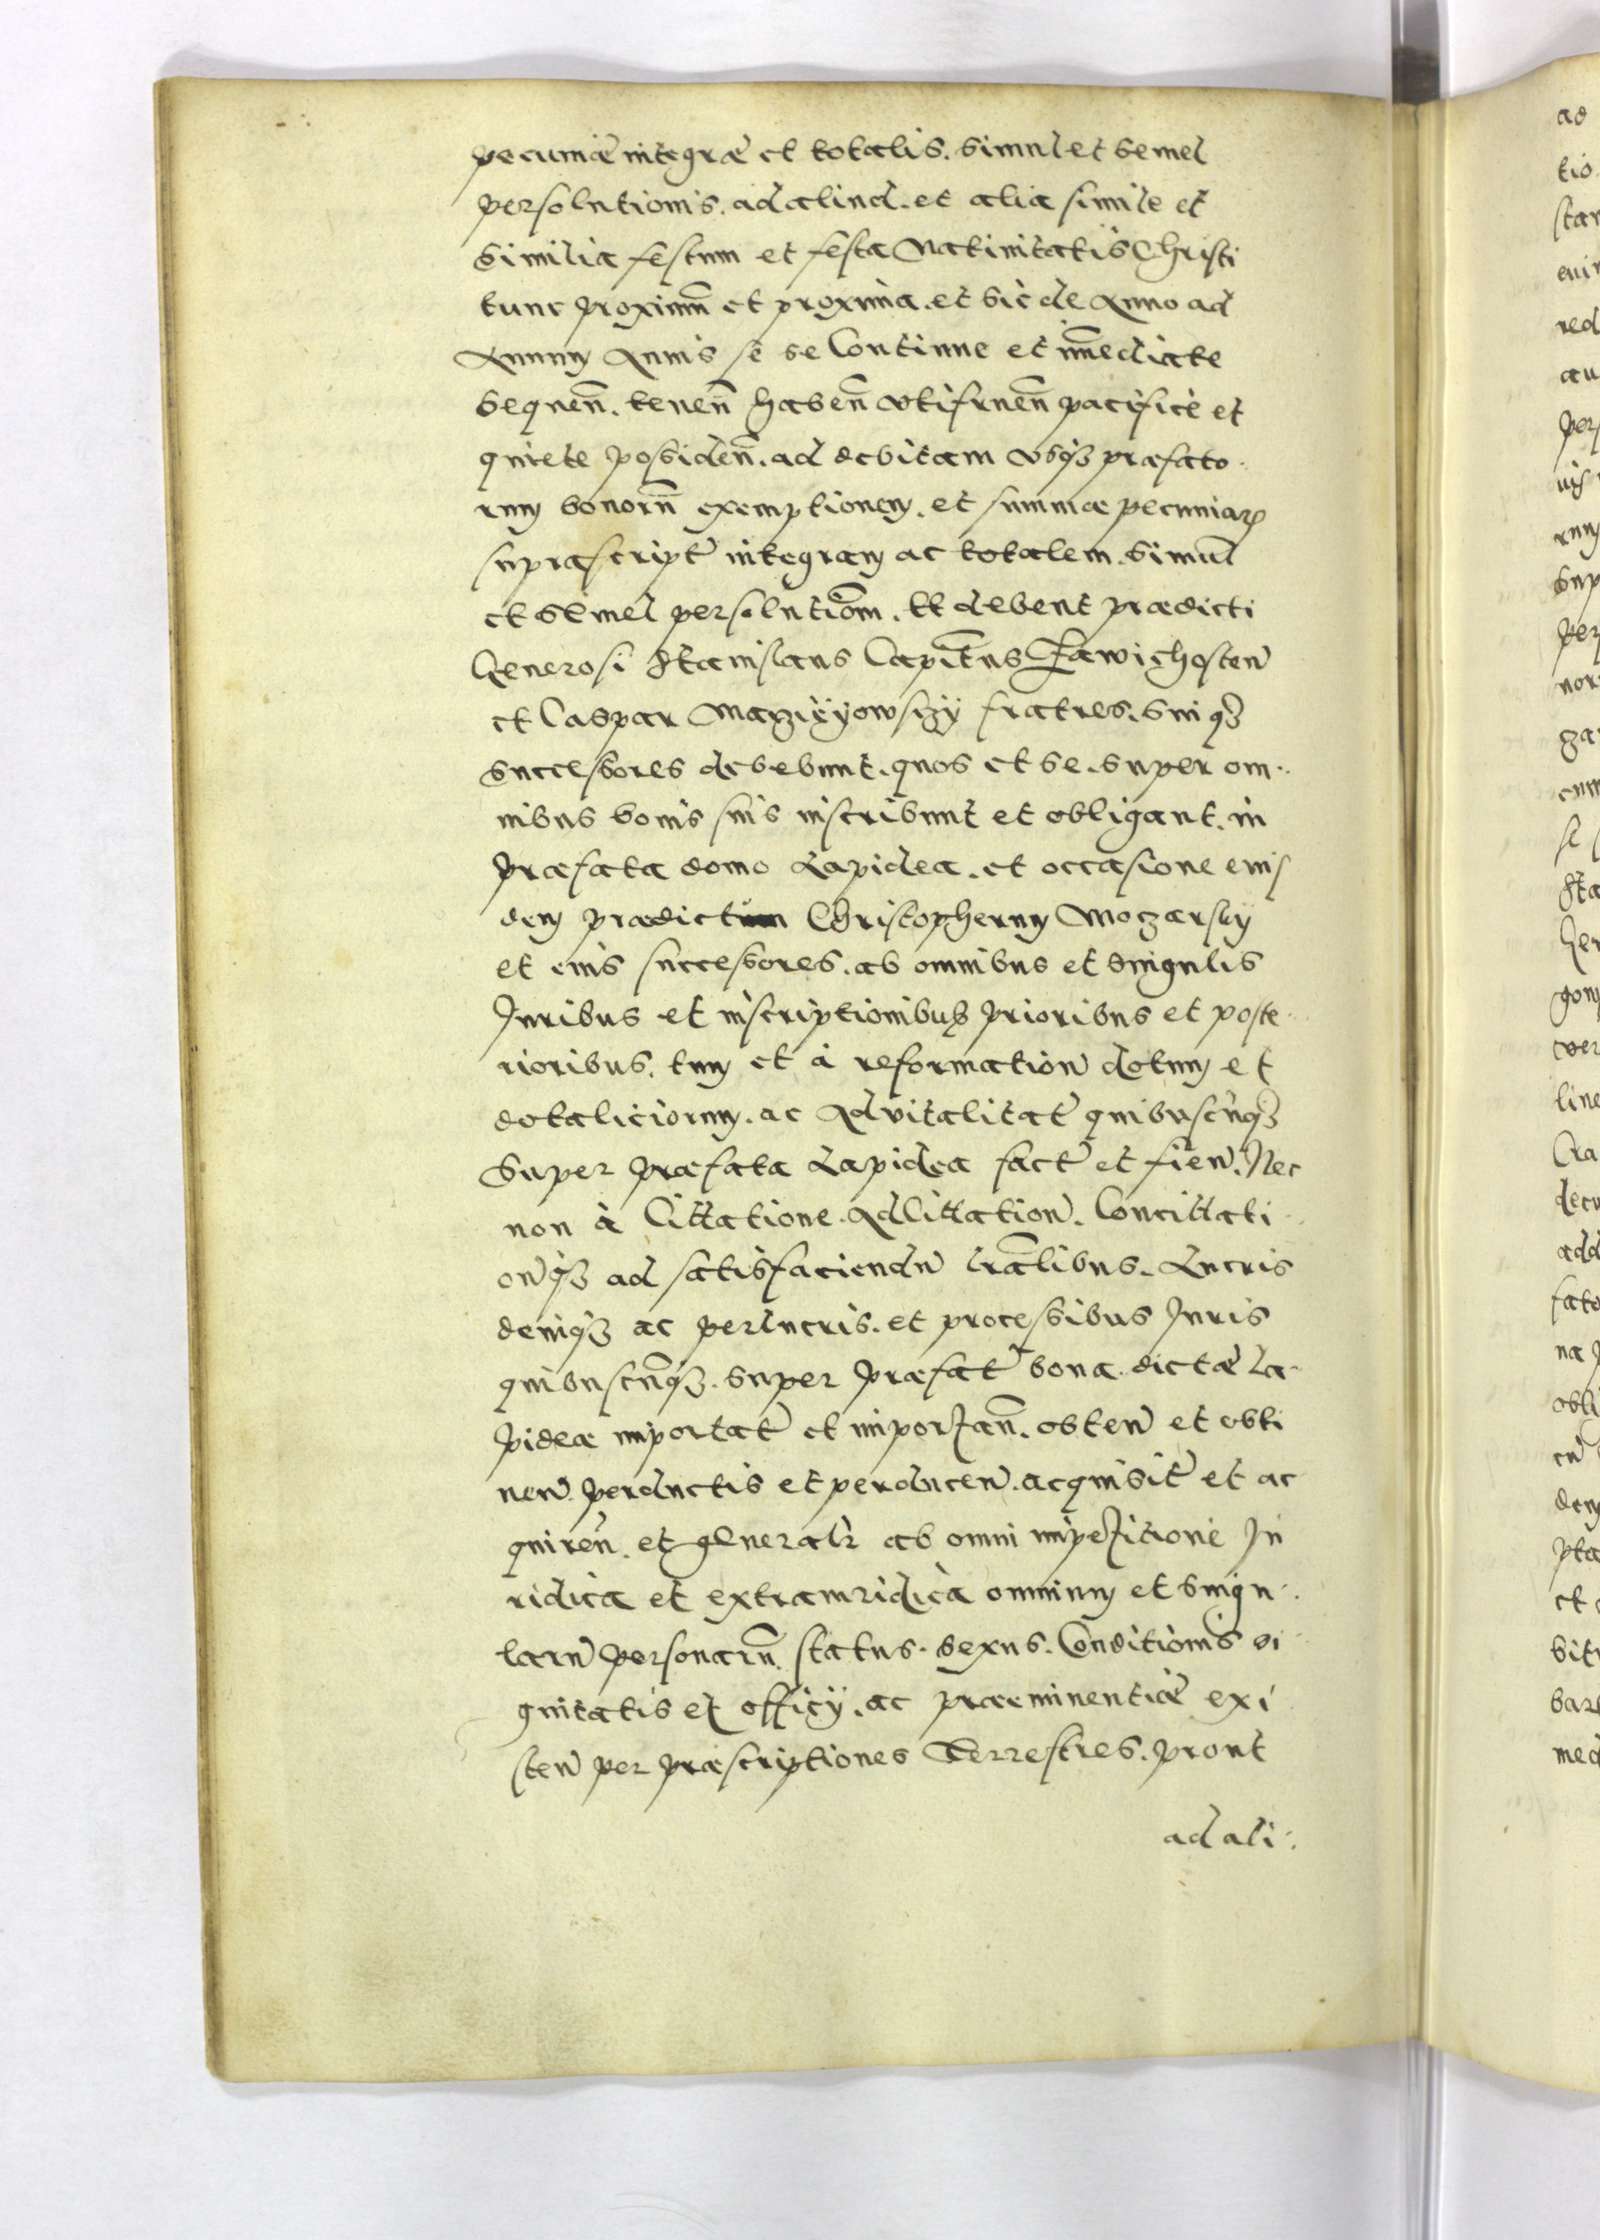 pecuniæ integræ et totalis. simul et semel
persolutionis. ad aliud. et alia simile et
similia festum et festa Nativitatis Christi
tunc proximũ et proxima. et sic de Anno ad
Annum Annis se se Continue et im̃ediate
sequeñ. teneñ habeñ vtifrueñ pacifice et
quiete possideñ. ad debitam vsq3 præfato-
rum bonorũ exemptionem. et summæ pecuniar
suprascript integram ac totalem. simul
et semel persolutiõm. Et debent prædicti
Generosi Stanislaus Capitñus Zawichosten
et Caspar Maczieyowsky fratres. suiq3
successores debebunt. quos et se. super om-
nibus bonis suis inscribunt et obligant. in
præfata domo Lapidea. et occasione eius
dem prædict Christopherum Moczarsky
et eius successores. ab omnibus et singulis
Iuribus et inscriptionibus prioribus et poste-
rioribus. tum et à reformation dotum et
dotaliciorum. ac Advitalitat quibuscũq3
super præfata Lapidea fact et fien. Nec
non à Cittatione. Adcittation. Concittati-
onq3 ad satisfaciendũ lr̃alibus. Lucris
deniq3 ac perlucris. et processibus Iuris
quibuscũq3. super præfat bona. dictæ La-
pideæ importat et importañ. obten et obti
nen. perductis et perducen. acquisit et ac
quireñ. et generalr ab omni impetitione Iu
ridica et extraiuridica omnium et singu-
larũ personarũ. status. sexus. Conditionis di
gnitatis et officij. ac præeminentiæ exi
sten per præscriptiones Terrestres. prout
ad ali-